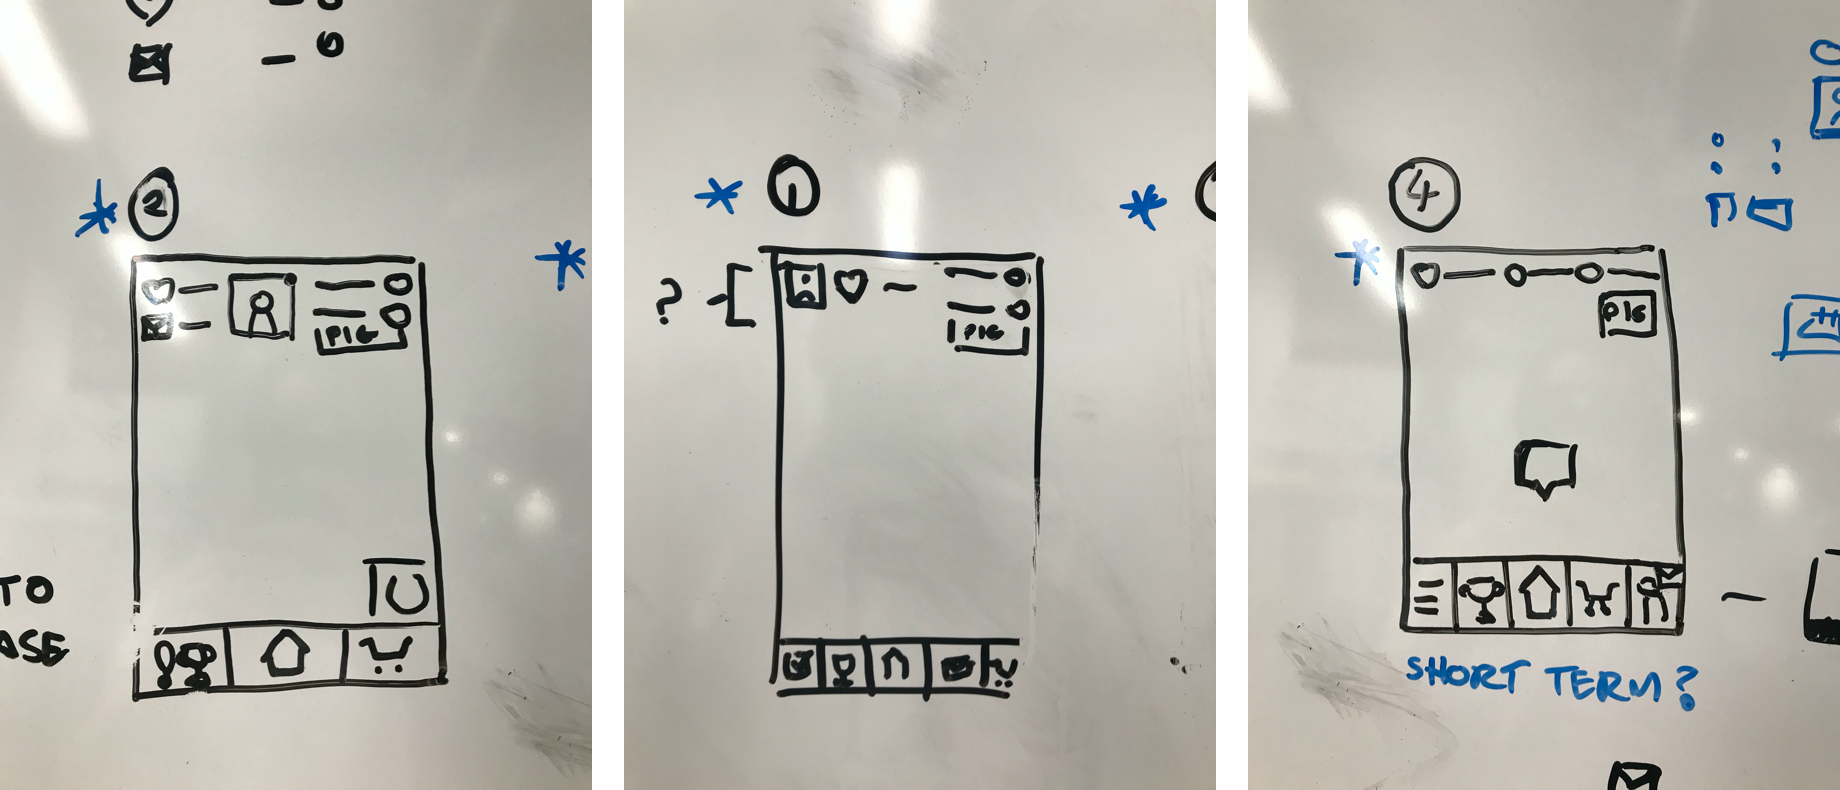 2
PIG
TO
ASE
1
?
PIG
4
PIG
SHORT TERM?